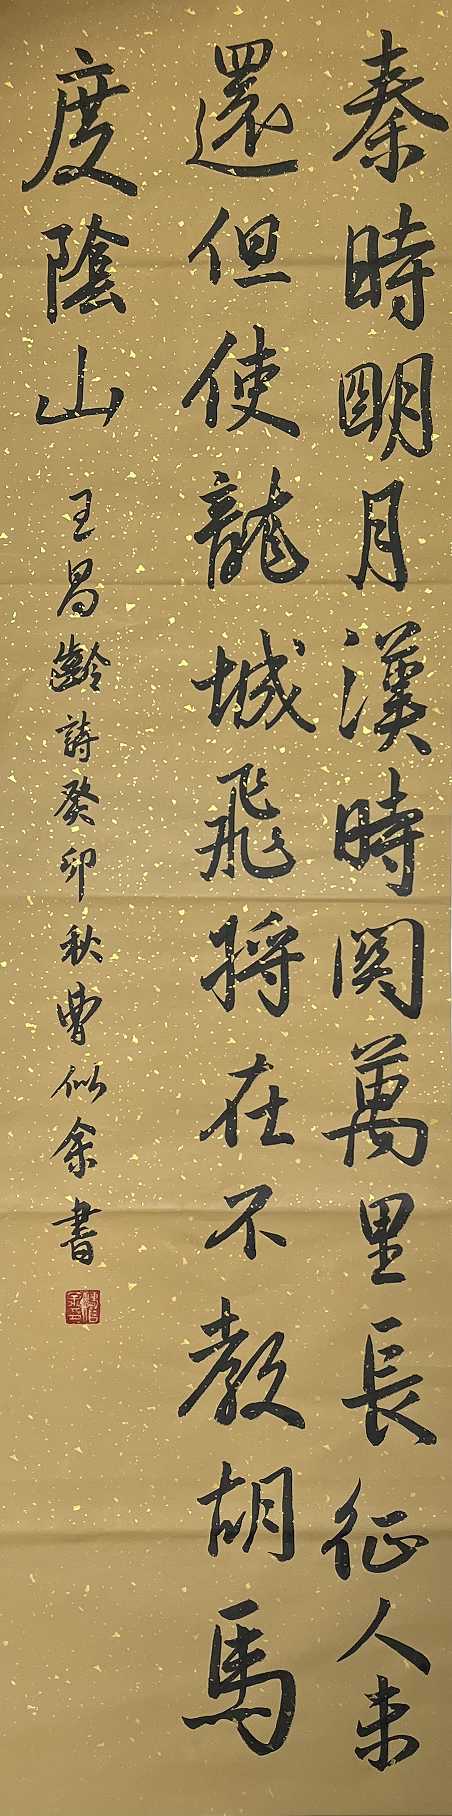 秦時明月漢時関萬里長征人未
還但使龍城飛将在不教胡馬
度陰山
王昌齡詩癸卯秋曹似余書